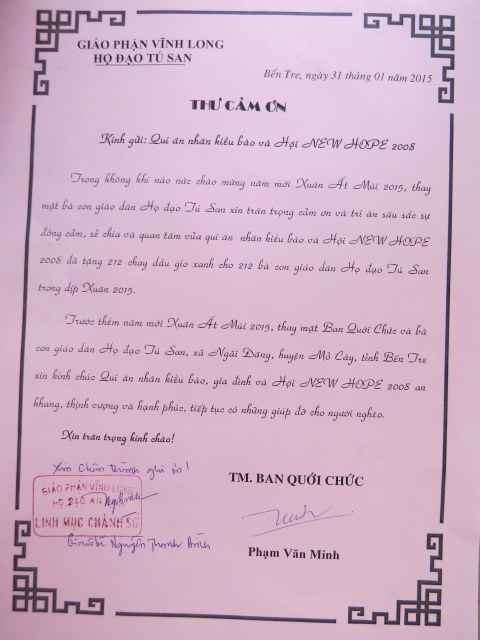 GIÁO PHẬN VĨNH LONG
HỌ ĐẠO TÚ SAN
Bến Tre, ngày 31 tháng 01 năm 2015
THƯ CẢM ƠN
Kính gửi: Quí ân nhân kiều bào và Hội NEW HOPE 2008
Trong không khí náo nức chào mừng năm mới Xuân Ất Mùi 2015, thay
mặt bà con giáo dân Họ đạo Tú San xin trân trọng cảm ơn và tri ân sâu sắc sự
đồng cảm, sẻ chia và quan tâm của quí ân nhân kiều bào và Hội NEW HOPE
2008 đã tặng 212 chay dầu gió xanh cho 212 bà con giáo dân Họ đạo Tú San
trong dịp Xuân 2015.
Trước thềm năm mới Xuân Ất Mùi 2015, thay mặt Ban Quới Chức và bà
con giáo dân Họ đạo Tú San, xã Ngãi Đăng, huyện Mỏ Cày, tỉnh Bến Tre
xin kính chúc Quí ân nhân kiều bào, gia đình và Hội NEW HOPE 2008 an
khang, thịnh vượng và hạnh phúc, tiếp tục có những giúp đỡ cho người nghèo.
Xin trân trọng kính chào!
Xin Chân thành ghi ơn!
TM. BAN QUỚI CHỨC
GIÁO PHẬN VĨNH LONG
HỌ ĐẠO AN
LINH MỤC CHÁNH SỞ
Nguyễn Thanh
Phạm Văn Minh